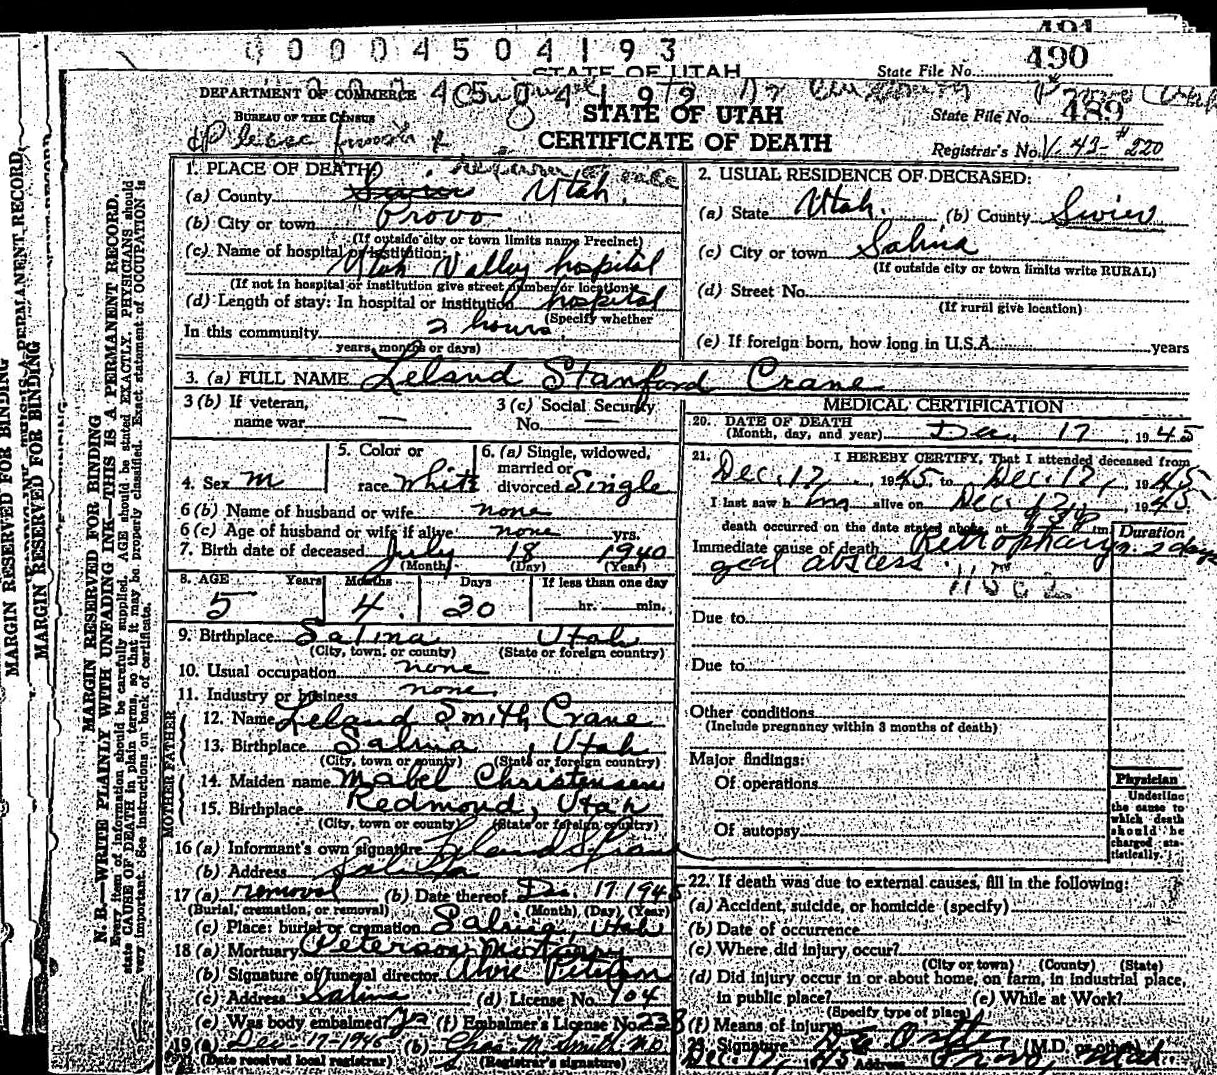 0 0 0 4 5 0 4 1 9 3
491
490
STATE OF UTAH
State File No.
DEPARTMENT OF COMMERCE
BUREAU OF THE CENSUS
STATE OF UTAH
State File No. 489
CERTIFICATE OF DEATH
Registrar's No. V-43-#220
Please
1. PLACE OF DEATH:
(a) County Sevier Utah.
(b) City or town Provo
(If outside city or town limits name Precinct)
(c) Name of hospital or institution:
Utah Valley hospital
(If not in hospital or institution give street number or location)
(d) Length of stay: In hospital or institution hospital
(Specify whether
In this community 2 hours
years, months or days)
2. USUAL RESIDENCE OF DECEASED:
(a) State Utah. (b) County Sevier
(c) City or town Salina
(If outside city or town limits write RURAL)
(d) Street No.
(If rural give location)
(e) If foreign born, how long in U.S.A. years
3. (a) FULL NAME Leland Stanford Crane
3 (b) If veteran, name war —
3 (c) Social Security No. —
4. Sex M
5. Color or race White
6. (a) Single, widowed, married or divorced Single
6 (b) Name of husband or wife none
6 (c) Age of husband or wife if alive none yrs.
7. Birth date of deceased July 18 1940
(Month) (Day) (Year)
8. AGE Years Months Days If less than one day
5 4 30 hr. min.
9. Birthplace Salina Utah
(City, town, or county) (State or foreign country)
10. Usual occupation none
11. Industry or business none
FATHER
12. Name Leland Smith Crane
13. Birthplace Salina, Utah
(City, town or county) (State or foreign country)
MOTHER
14. Maiden name Mabel Christensen
15. Birthplace Redmond, Utah
(City, town or county) (State or foreign country)
16 (a) Informant's own signature Leland S Crane
(b) Address Salina
17 (a) removal (b) Date thereof Dec. 17 1945
(Burial, cremation, or removal) (Month) (Day) (Year)
(c) Place: burial or cremation Salina, Utah
18 (a) Mortuary Peterson Mortuary
(b) Signature of funeral director
(c) Address Salina (d) License No. 104
(e) Was body embalmed? Yes (f) Embalmer's License No. 238
19 (a) Dec-17-1945 (b) Chas. M. Smith M.D.
(Date received local registrar) (Registrar's signature)
MEDICAL CERTIFICATION
20. DATE OF DEATH
(Month, day, and year) Dec. 17, 1945
21. I HEREBY CERTIFY, That I attended deceased from
Dec. 17, 1945, to Dec. 17, 1945
I last saw him alive on Dec. 17, 1945
death occurred on the date stated above, at m
Duration
Immediate cause of death Retropharyn- 2 days
geal abscess.
Due to
Due to
Other conditions
(Include pregnancy within 3 months of death)
Major findings:
Of operations
Of autopsy
Physician
Underline the cause to which death should be charged statistically.
22. If death was due to external causes, fill in the following:
(a) Accident, suicide, or homicide (specify)
(b) Date of occurrence
(c) Where did injury occur?
(City or town) (County) (State)
(d) Did injury occur in or about home, on farm, in industrial place,
in public place? (e) While at Work?
(Specify type of place)
(f) Means of injury
23. Signature (M.D. or other)
Dec. 17, 45 Address Provo, Utah
MARGIN RESERVED FOR BINDING
MARGIN RESERVED FOR BINDING
MARGIN RESERVED FOR BINDING
N. B.—WRITE PLAINLY WITH UNFADING INK—THIS IS A PERMANENT RECORD.
Every item of information should be carefully supplied. AGE should be stated EXACTLY. PHYSICIANS should
state CAUSE OF DEATH in plain terms, so that it may be properly classified. Exact statement of OCCUPATION is
very important. See instructions on back of certificate.
PERMANENT RECORD